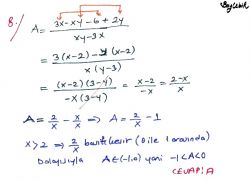 8.) A = 3x - xy - 6 + 2y / xy - 3x
= 3(x-2) - y(x-2) / x(y-3)
= (x-2)(3-y) / -x(3-y) = x-2 / -x = 2-x / x
A = 2/x - x/x ⇒ A = 2/x - 1
x > 2 ⇒ 2/x basit kesir (0 ile 1 arasında)
Dolayısıyla A ∈ (-1,0) yani -1 < A < 0
CEVAP: A